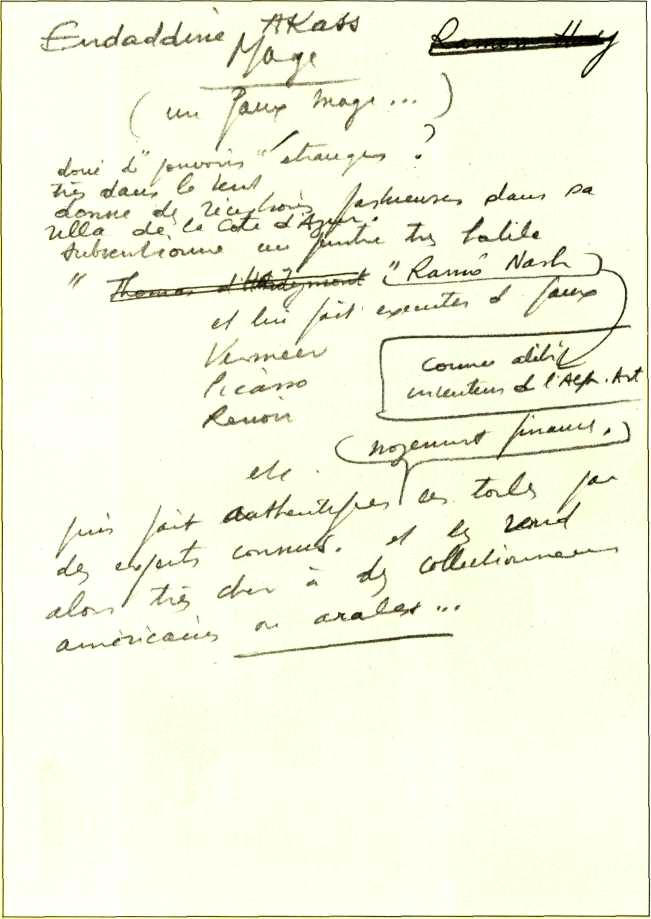 Endaddine AKass
Mage
(un faux mage...)
doué d'"pouvoirs" étranges ?
très dans le vent
donne des réceptions fastueuses dans sa
villa de la Côte d'Azur.
Subventionne un peintre très habile
" Thomas d'Hartimont " (Ramó Nash)
et lui fait exécuter d faux
Vermeer
Picasso
Renoir
etc.
comme alibi
inventeur d l'Alph. Art
(noyennant finance.)
puis fait authentifier ces toiles par
des experts connus. et les vend
alors très cher à des collectionneurs
américains ou arabes...